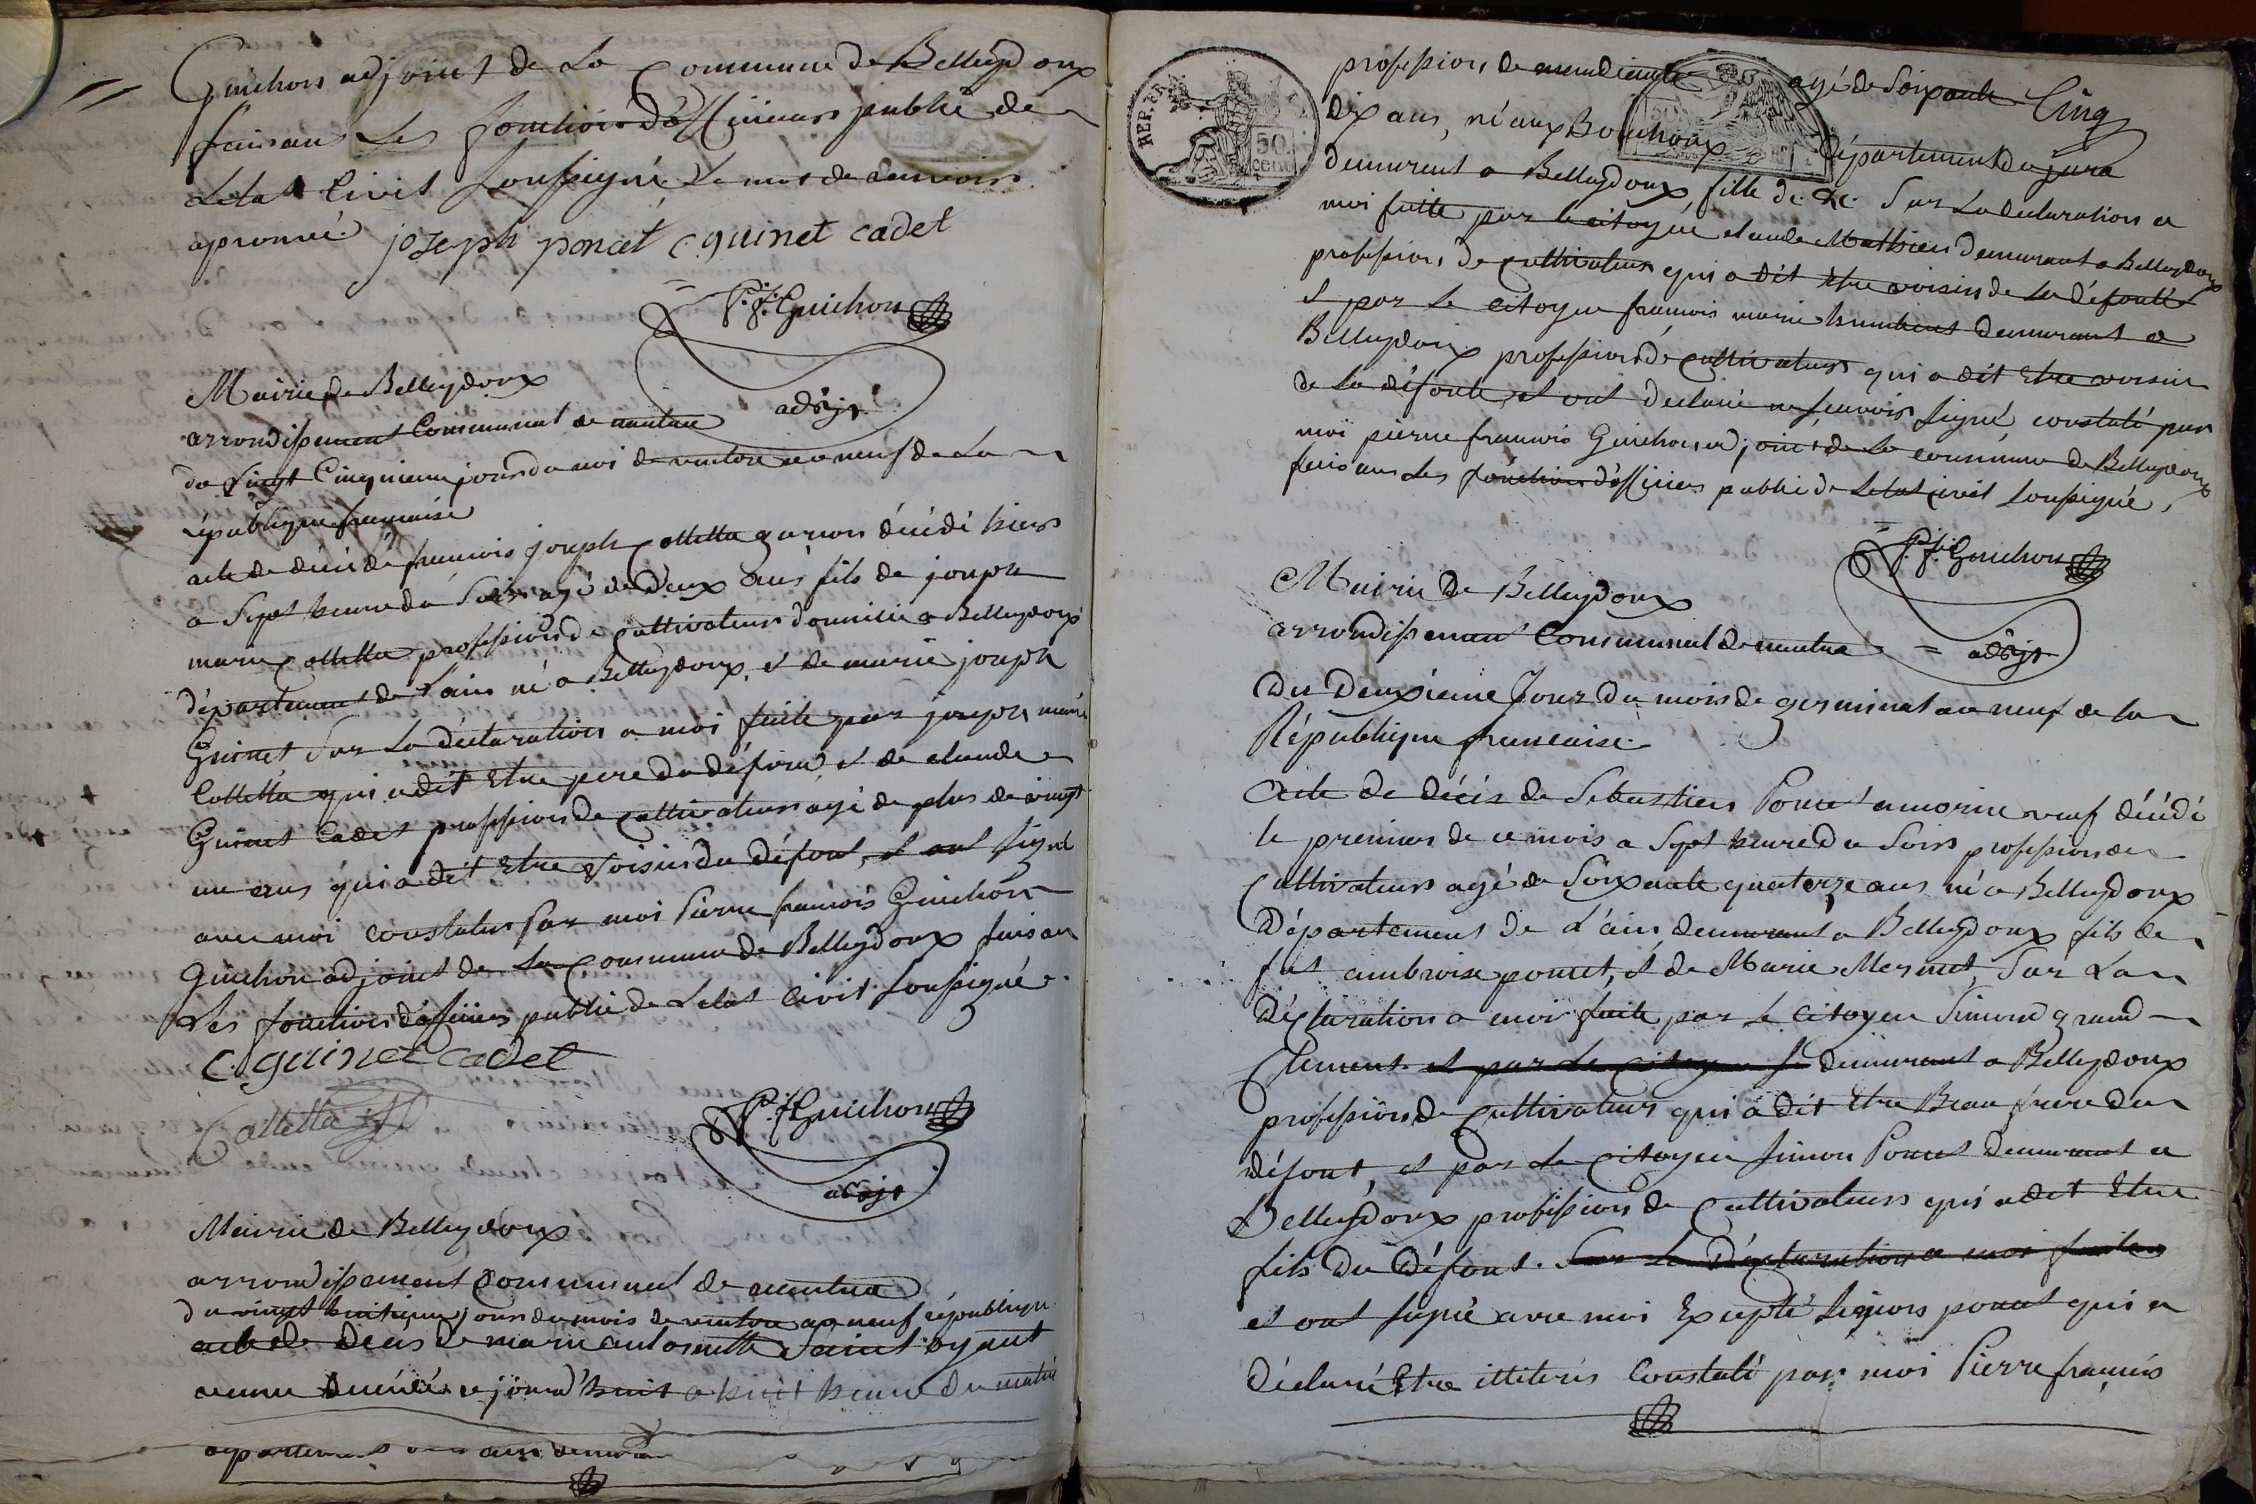 Guichon adjoint de La Commune de Belleydoux
faisans Les fonctions d'officiers publié de
Letat Civil soussigné Le mot de
aprouvé. joseph poncet C. guinet cadet
P. f. Guichon
adojt
Mairie de Belleydoux
arrondissement Communal de nantua
du Vingt Cinquieme jour du moi de ventose an neuf de La
république francaise
acte de décè de francois joseph Colletta garson décédé hiers
a sept heure du Soir agé de Deux ans fils de joseph
marie Colletta profession de Cultivateurs domicilié a Belleydoux
département de Lain né a Belleydoux, et de marie joseph
Guinet Sur La déclaration a moi faite par joseph marie
Colletta qui a dit Etre pere du défunt, et de claude
Guinet Cadet profession de Cultivateurs agé de plus de vingt
un ans qui a dit Etre Voisin du défont, et ont signé
avec moi constatus Par moi Pierre francois Guichon
Guichon adjoint de La Commune de Belleydoux faisan
Les fonctions d'officiers publié de Letat Civil soussigné.
C. guinet cadet
Colletta
P. f. Guichon
adojt
Mairie de Belleydoux
arrondissement Communal de nantua
du vingt huitieme jour du mois de ventose an neuf république
acte de deces de marie antoinette Saint oyant
décédée ce jourd'huit a huit heure du matin
departement ain
REP. FRA.
50 cent
profession de mendiante agé de Soixante Cinq
Dix ans, né aux Bouchoux Département du jura
demeurent a Belleydoux, fille de &c. Sur La declaration a
moi faitte par le citoyen claude Mathieu demeurant a Belleydoux
profession de Cultivateur qui a dit Etre voisin de La défonte
et par Le citoyen francois marie humbert demeurant a
Belleydoux profession de Cultivateurs qui a dit Etre voisin
de La défonte, et ont declaré ne scavoir signé, constaté par
moi pierre francois Guichon adjoint de La commune de Belleydoux
faisans Les fonctions d'officiers publié de Letat civil soussigné,
P. f. Guichon
adojt
Mairie De Belleydoux
arrondissement Communal de nantua
Du Deuxieme Jour Du mois de germinal an neuf de la
République francaise.
Acte de décés de Sebastien Poncet amorin veuf décédé
le premier de ce mois a Sept heure Du Soirs profession de
Cultivateurs agé de Soixante quatorze ans né a Belleydoux
Département de L'ain demeurant a Belleydoux fils de
fut ambroise poncet, et de Marie Mermet, Sur La
Déclaration a moi faite par Le Citoyen Simond grand
Clement. et par Le Citoyen Si demeurant a Belleydoux
profession de Cultivateurs qui a dit Etre Beau frere du
défont, et par Le Citoyen Simon Poncet Demeurant a
Belleydoux profession de Cultivateurs qui a dit Etre
fils du Défont. Sur La Déclaration a moi faite
et ont signé avec moi Excepté poncet qui a
Déclaré Etre illiterés Constaté par moi Pierre francois